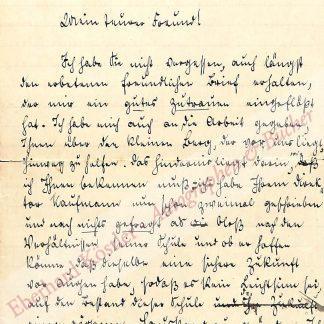 Mein teurer Freund!
Ich habe Sie nicht vergessen, auch längst
den erbetenen freundlichen Brief erhalten,
der mir ein gutes Zutrauen eingeflößt
hat. Ich habe mich auch an die Arbeit gegeben
Ihnen über den kleinen Berg, der vor uns liegt
hinweg zu helfen. Das Hindernis liegt darin, daß
ich Ihnen bekennen muß, ich habe Herrn Direk-
tor Kaufmann nun schon zweimal geschrieben
und noch nichts gefragt als bloß nach den
Verhältnissen seiner Schule und ob er hoffen
könne, daß dieselbe eine sichere Zukunft
vor Augen habe, sodaß es kein Leichtsinn sei,
auf den Bestand dieser Schule und ihre Zukunft